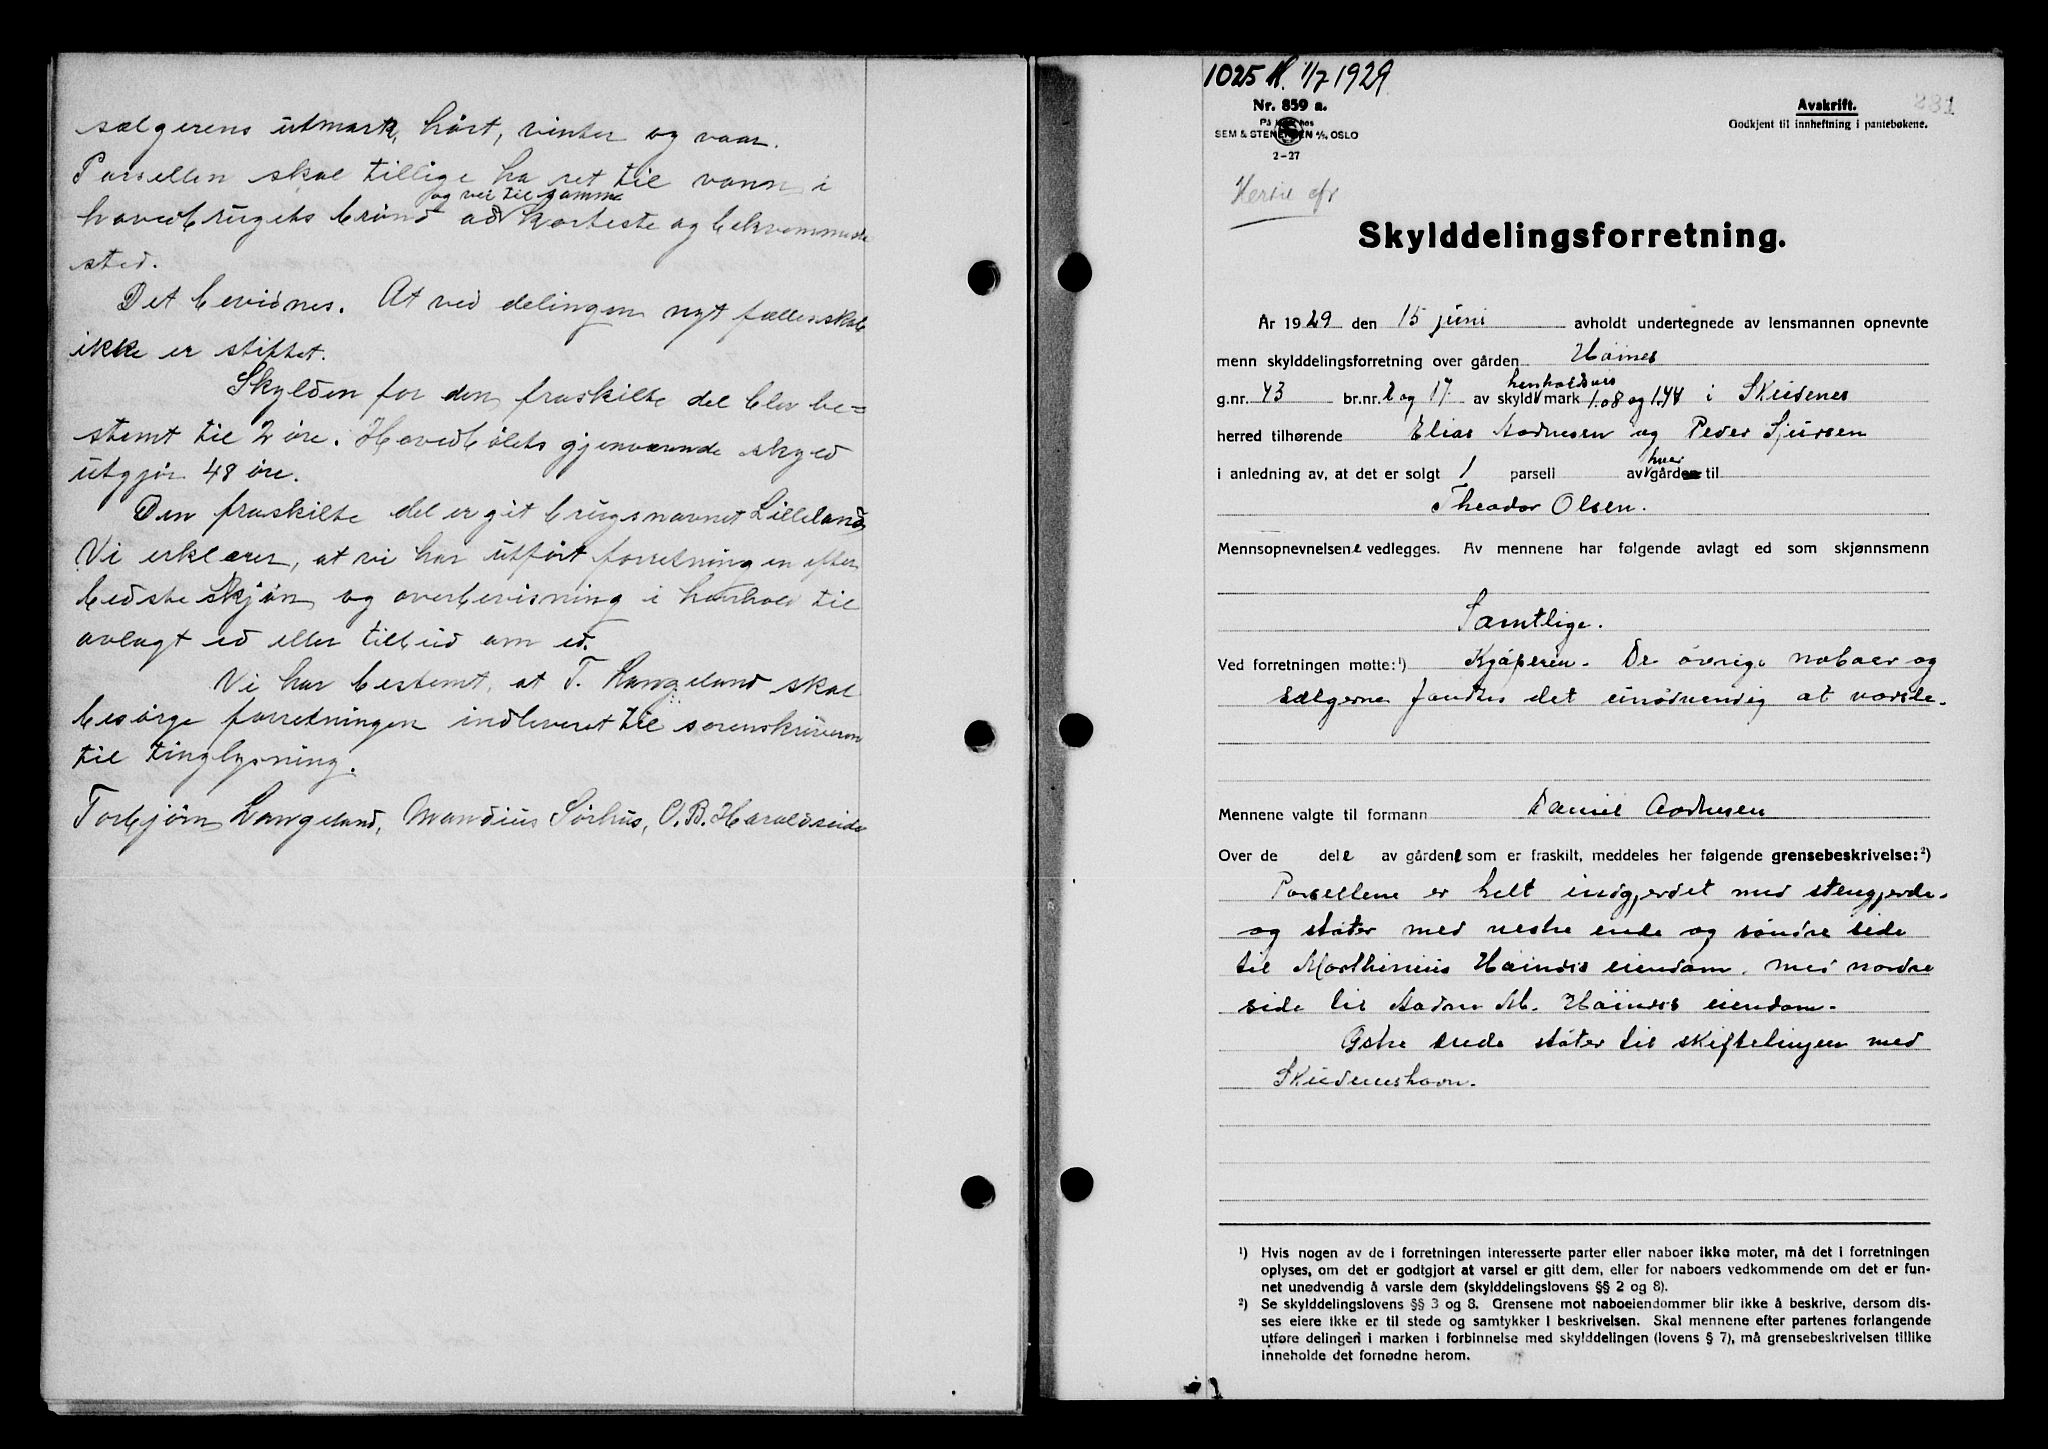 sælgerens utmark, høst, vinter og vaar.
Parsellen skal tillige ha ret til vann i
og vei til samme
hovedbrugets brønd ad korteste og bekvemmeste
sted.
Det bevidnes. At ved delingen nyt fællesskab
ikke er stiftet.
Skylden for den fraskilte del blev be=
stemt til 2 øre. Hovedbølets gjenværende skyld
utgjør 48 øre.
Den fraskilte del er git brugsnavnet Lilleland
Vi erklærer, at vi har utført forretningen efter
bedste skjøn og overbevisning i henhold til
avlagt ed eller tilbud om ed.
Vi har bestemt, at T. Langeland skal
besørge forretningen indleveret til sorenskriveren
til tinglysning.
Torbjørn Langeland, Mandius Sørhus, O. B. Haraldseide
1025 1/7 1929
Nr. 859 a.
På lager hos
SEM & STENERSEN A/S, OSLO
2-27
Avskrift.
231
Godkjent til innheftning i pantebøkene.
Skylddelingsforretning.
År 1929 den 15 juni avholdt undertegnede av lensmannen opnevnte
menn skylddelingsforretning over gården Håines
henholdsvis
g.nr. 43 br.nr. 2 og 17 av skyld mark 1.08 og 1.44 i Skudenes
herred tilhørende Elias Aadnesen og Peder Sjursen
hver
i anledning av, at det er solgt 1 parsell av gården til
Theodor Olsen.
Mennsopnevnelsene vedlegges. Av mennene har følgende avlagt ed som skjønnsmenn
Samtlige.
Ved forretningen møtte:¹) Kjøperen. De øvrige naboer og
sælgerne fandtes det unødvendig at varsle.
Mennene valgte til formann Daniel Aadnesen
Over de dele av gårdene som er fraskilt, meddeles her følgende grensebeskrivelse:²)
Parsellene er helt indgjerdet med stengjerde.
og støter med vestre ende og søndre side
til Marthinius Håindes eiendom, med nordre
side til Aadne M. Håindes eiendom.
Østre ende støter til skiftelinjen med
Skudeneshavn.
¹) Hvis nogen av de i forretningen interesserte parter eller naboer ikke møter, må det i forretningen
oplyses, om det er godtgjort at varsel er gitt dem, eller for naboers vedkommende om det er fun-
net unødvendig å varsle dem (skylddelingslovens §§ 2 og 8).
²) Se skylddelingslovens §§ 3 og 8. Grensene mot naboeiendommer blir ikke å beskrive, dersom dis-
ses eiere ikke er til stede og samtykker i beskrivelsen. Skal mennene efter partenes forlangende
utføre delingen i marken i forbinnelse med skylddelingen (lovens § 7), må grensebeskrivelsen tillike
inneholde det fornødne herom.